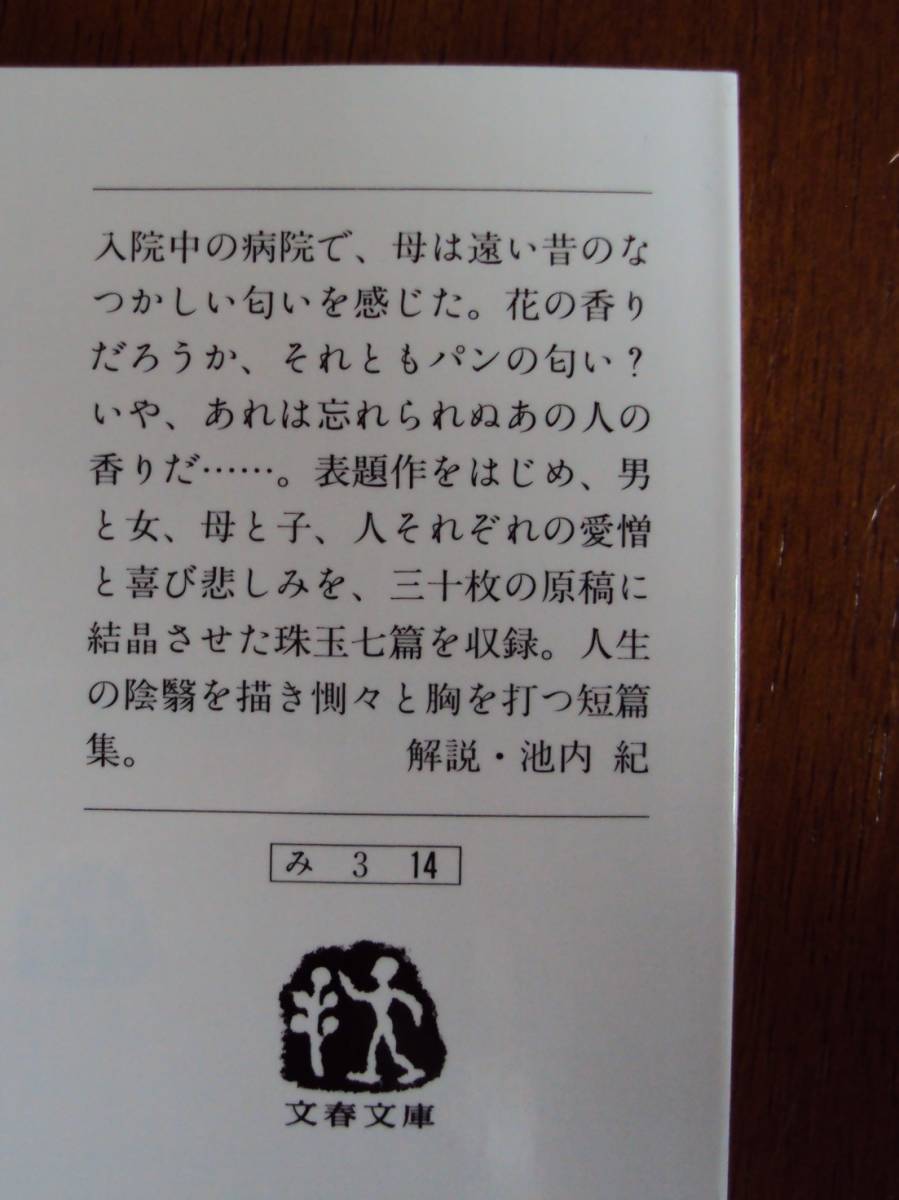 入院中の病院で、母は遠い昔のな
つかしい匂いを感じた。花の香り
だろうか、それともパンの匂い？
いや、あれは忘れられぬあの人の
香りだ……。表題作をはじめ、男
と女、母と子、人それぞれの愛憎
と喜び悲しみを、三十枚の原稿に
結晶させた珠玉七篇を収録。人生
の陰翳を描き惻々と胸を打つ短篇
集。　解説・池内 紀
み 3 14
文春文庫